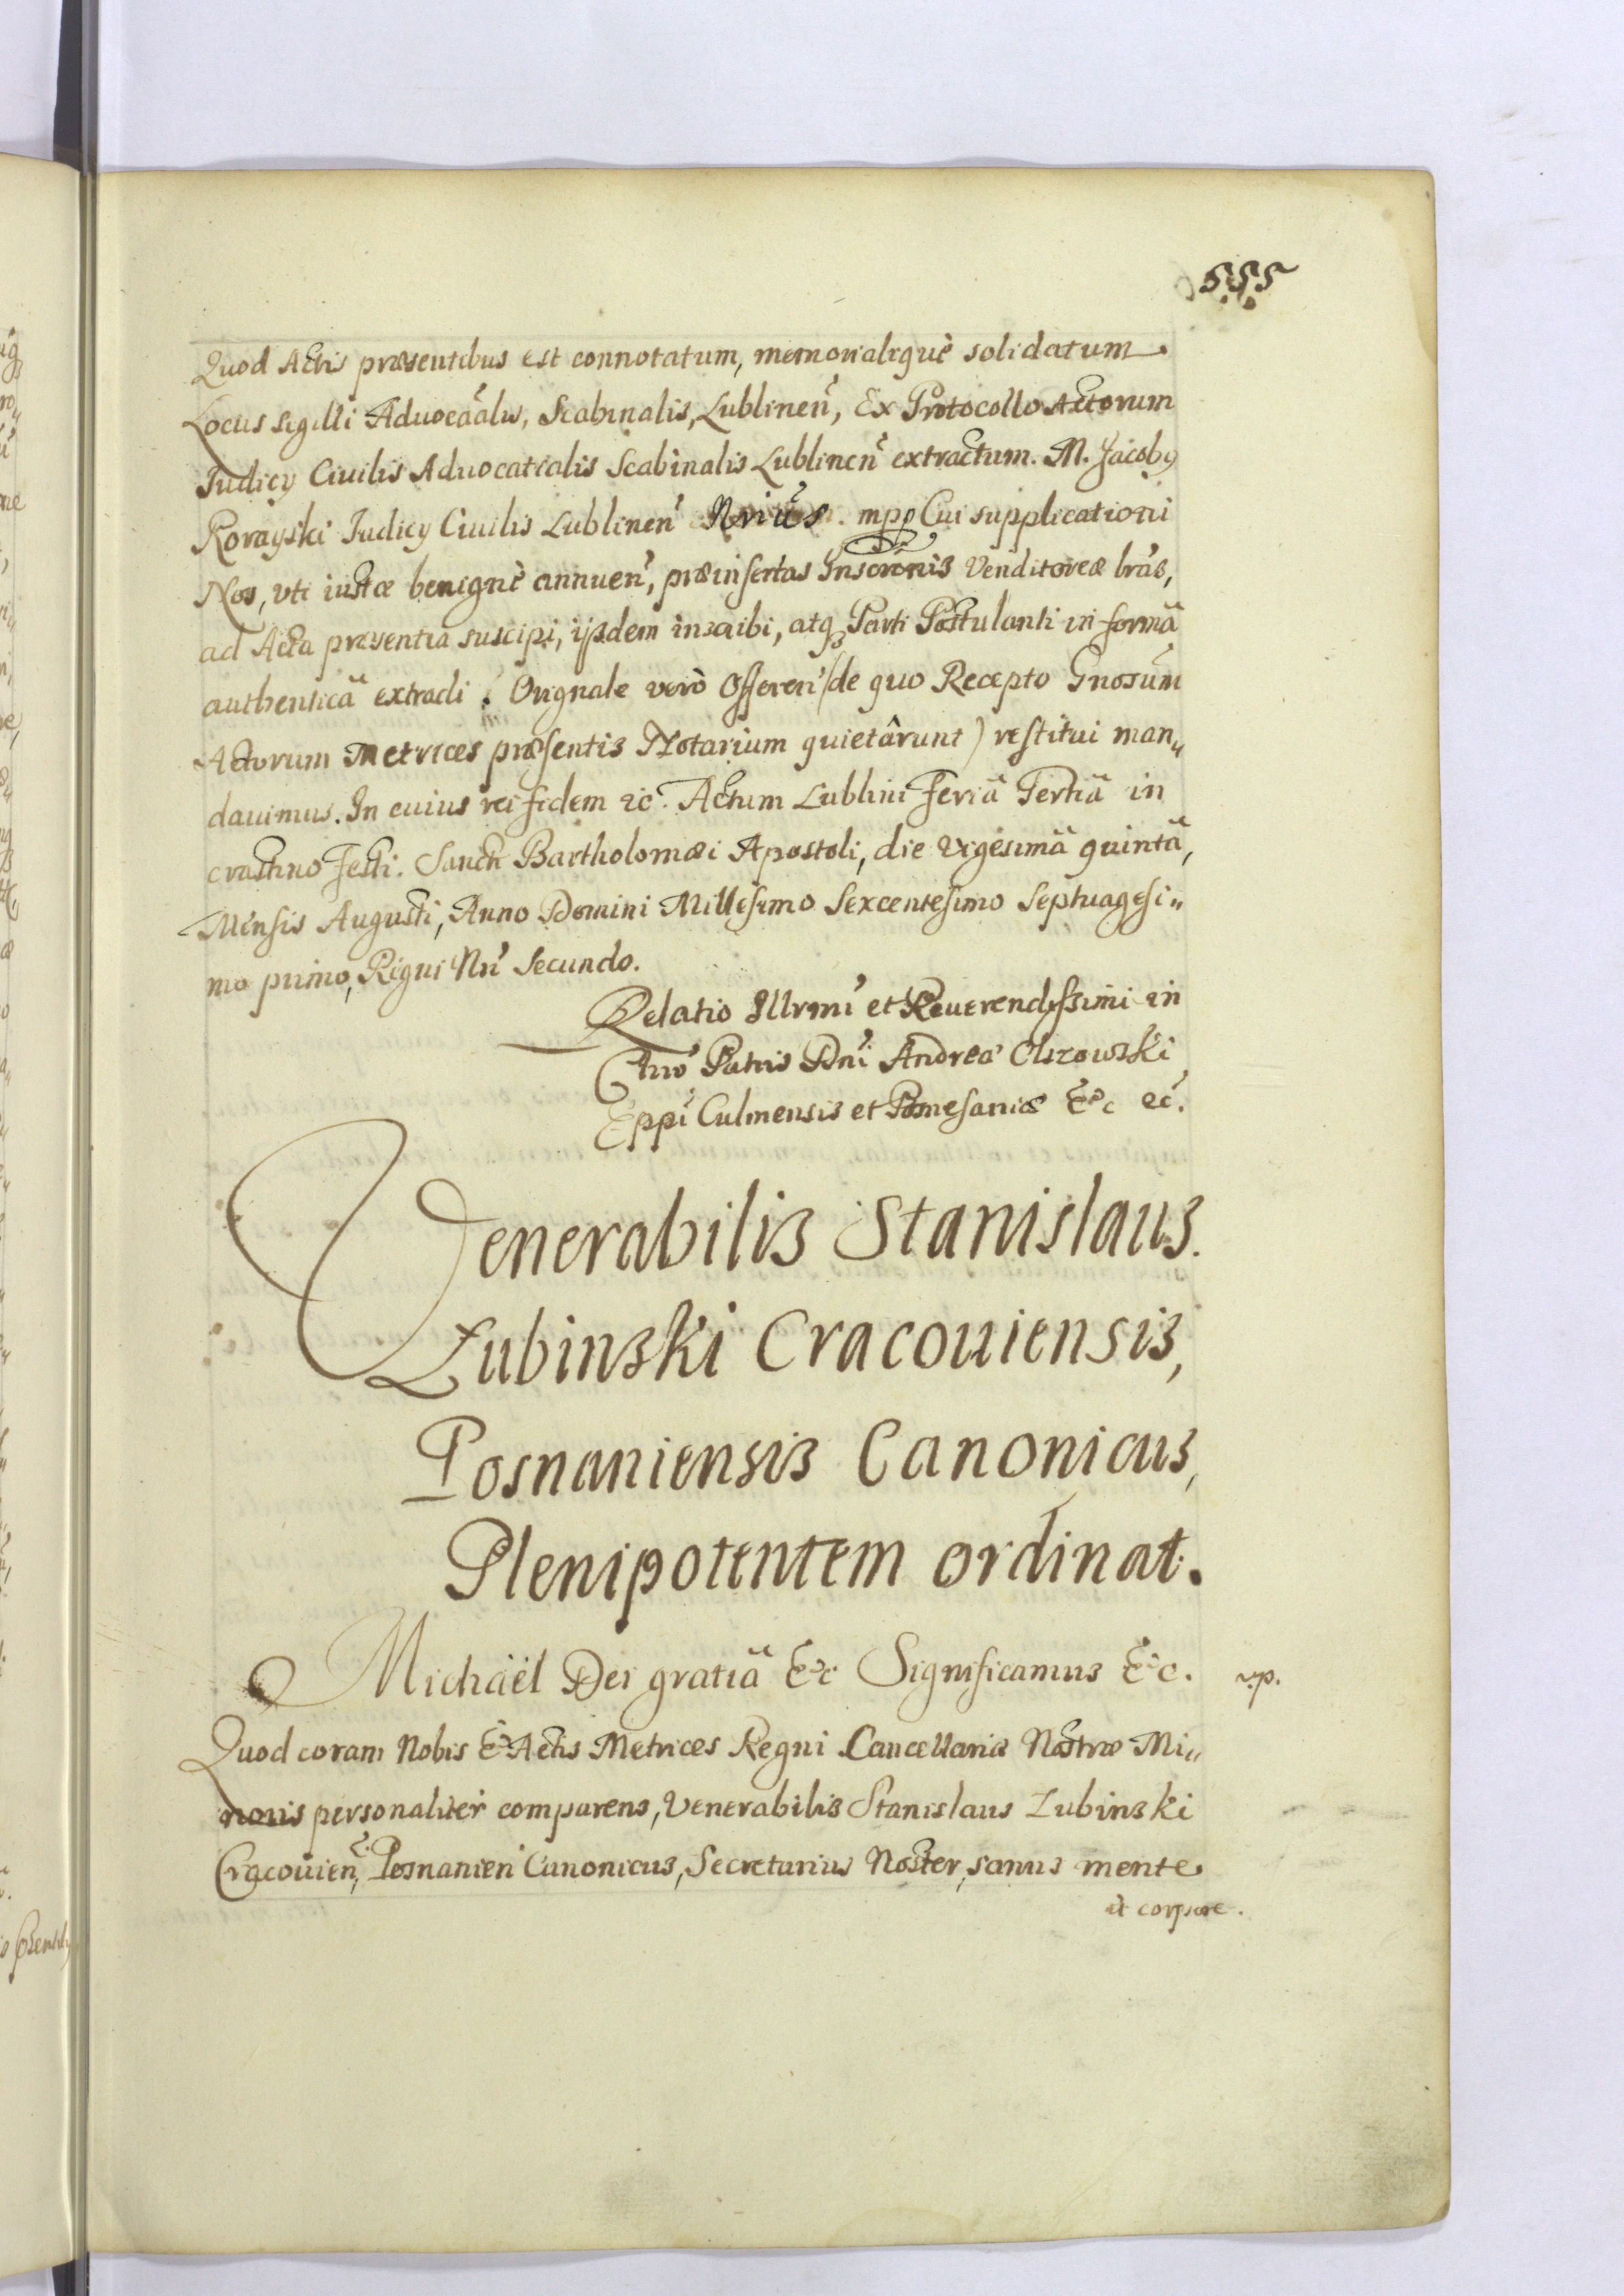 555
Quod Actis præsentibus est connotatum, memorialiquè solidatum.
Locus sigilli Aduocaãlis, Scabinalis, Lublineñ, Ex Protocollo Actorum
Iudicij Ciuilis Aduocatialis Scabinalis Lublineñ extractum. M. Jacobg
Rorayski Iudicij Ciuilis Lublineñ Nriũs. mpp Cui supplicationi
Nos, vti iustæ benignè annueñ, præinsertas Inscrõnis Venditoreæ lrãs,
ad Acta præsentia suscipi, ijsdem inscribi, atqꝫ Parti Postulanti in formâ
authenticâ extradi. Orignale verò Offereñ (de quo Recepto Gnosũm
Actorum Metrices præsentis Notarium quietârunt) restitui man„
dauimus. In cuius rei fidem ec. Actum Lublini feriâ Tertiâ in
crastino festi. Sancti Bartholomæi Apostoli, die Vigesimâ quintâ,
Mensis Augusti, Anno Domini Millesimo Sexcentesimo Septuagesi„
mo primo, Regni Nri Secundo.
Relatio Illrmi et Reuerendissimi in
Chro Patris Dni Andreæ Olszowski
Eppi Culmensis et Pomesaniæ &c ec.
Venerabilis Stanislaus
Łubinski Cracouiensis,
Posnaniensis Canonicus,
Plenipotentem ordinat.
Michäel Dei gratiâ &c Significamus &c. v.p.
Quod coram Nobis & Actis Metrices Regni Cancellariæ Nostræ Mi„
noris personaliter comparens, Venerabilis Stanislaus Łubinski
Cracouieñ, Posnanieñ Canonicus, Secretarius Noster, sanus mente
et corpore.